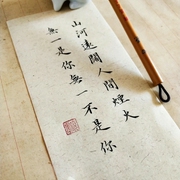 山河遠闊人間煙火
無一是你無一不是你